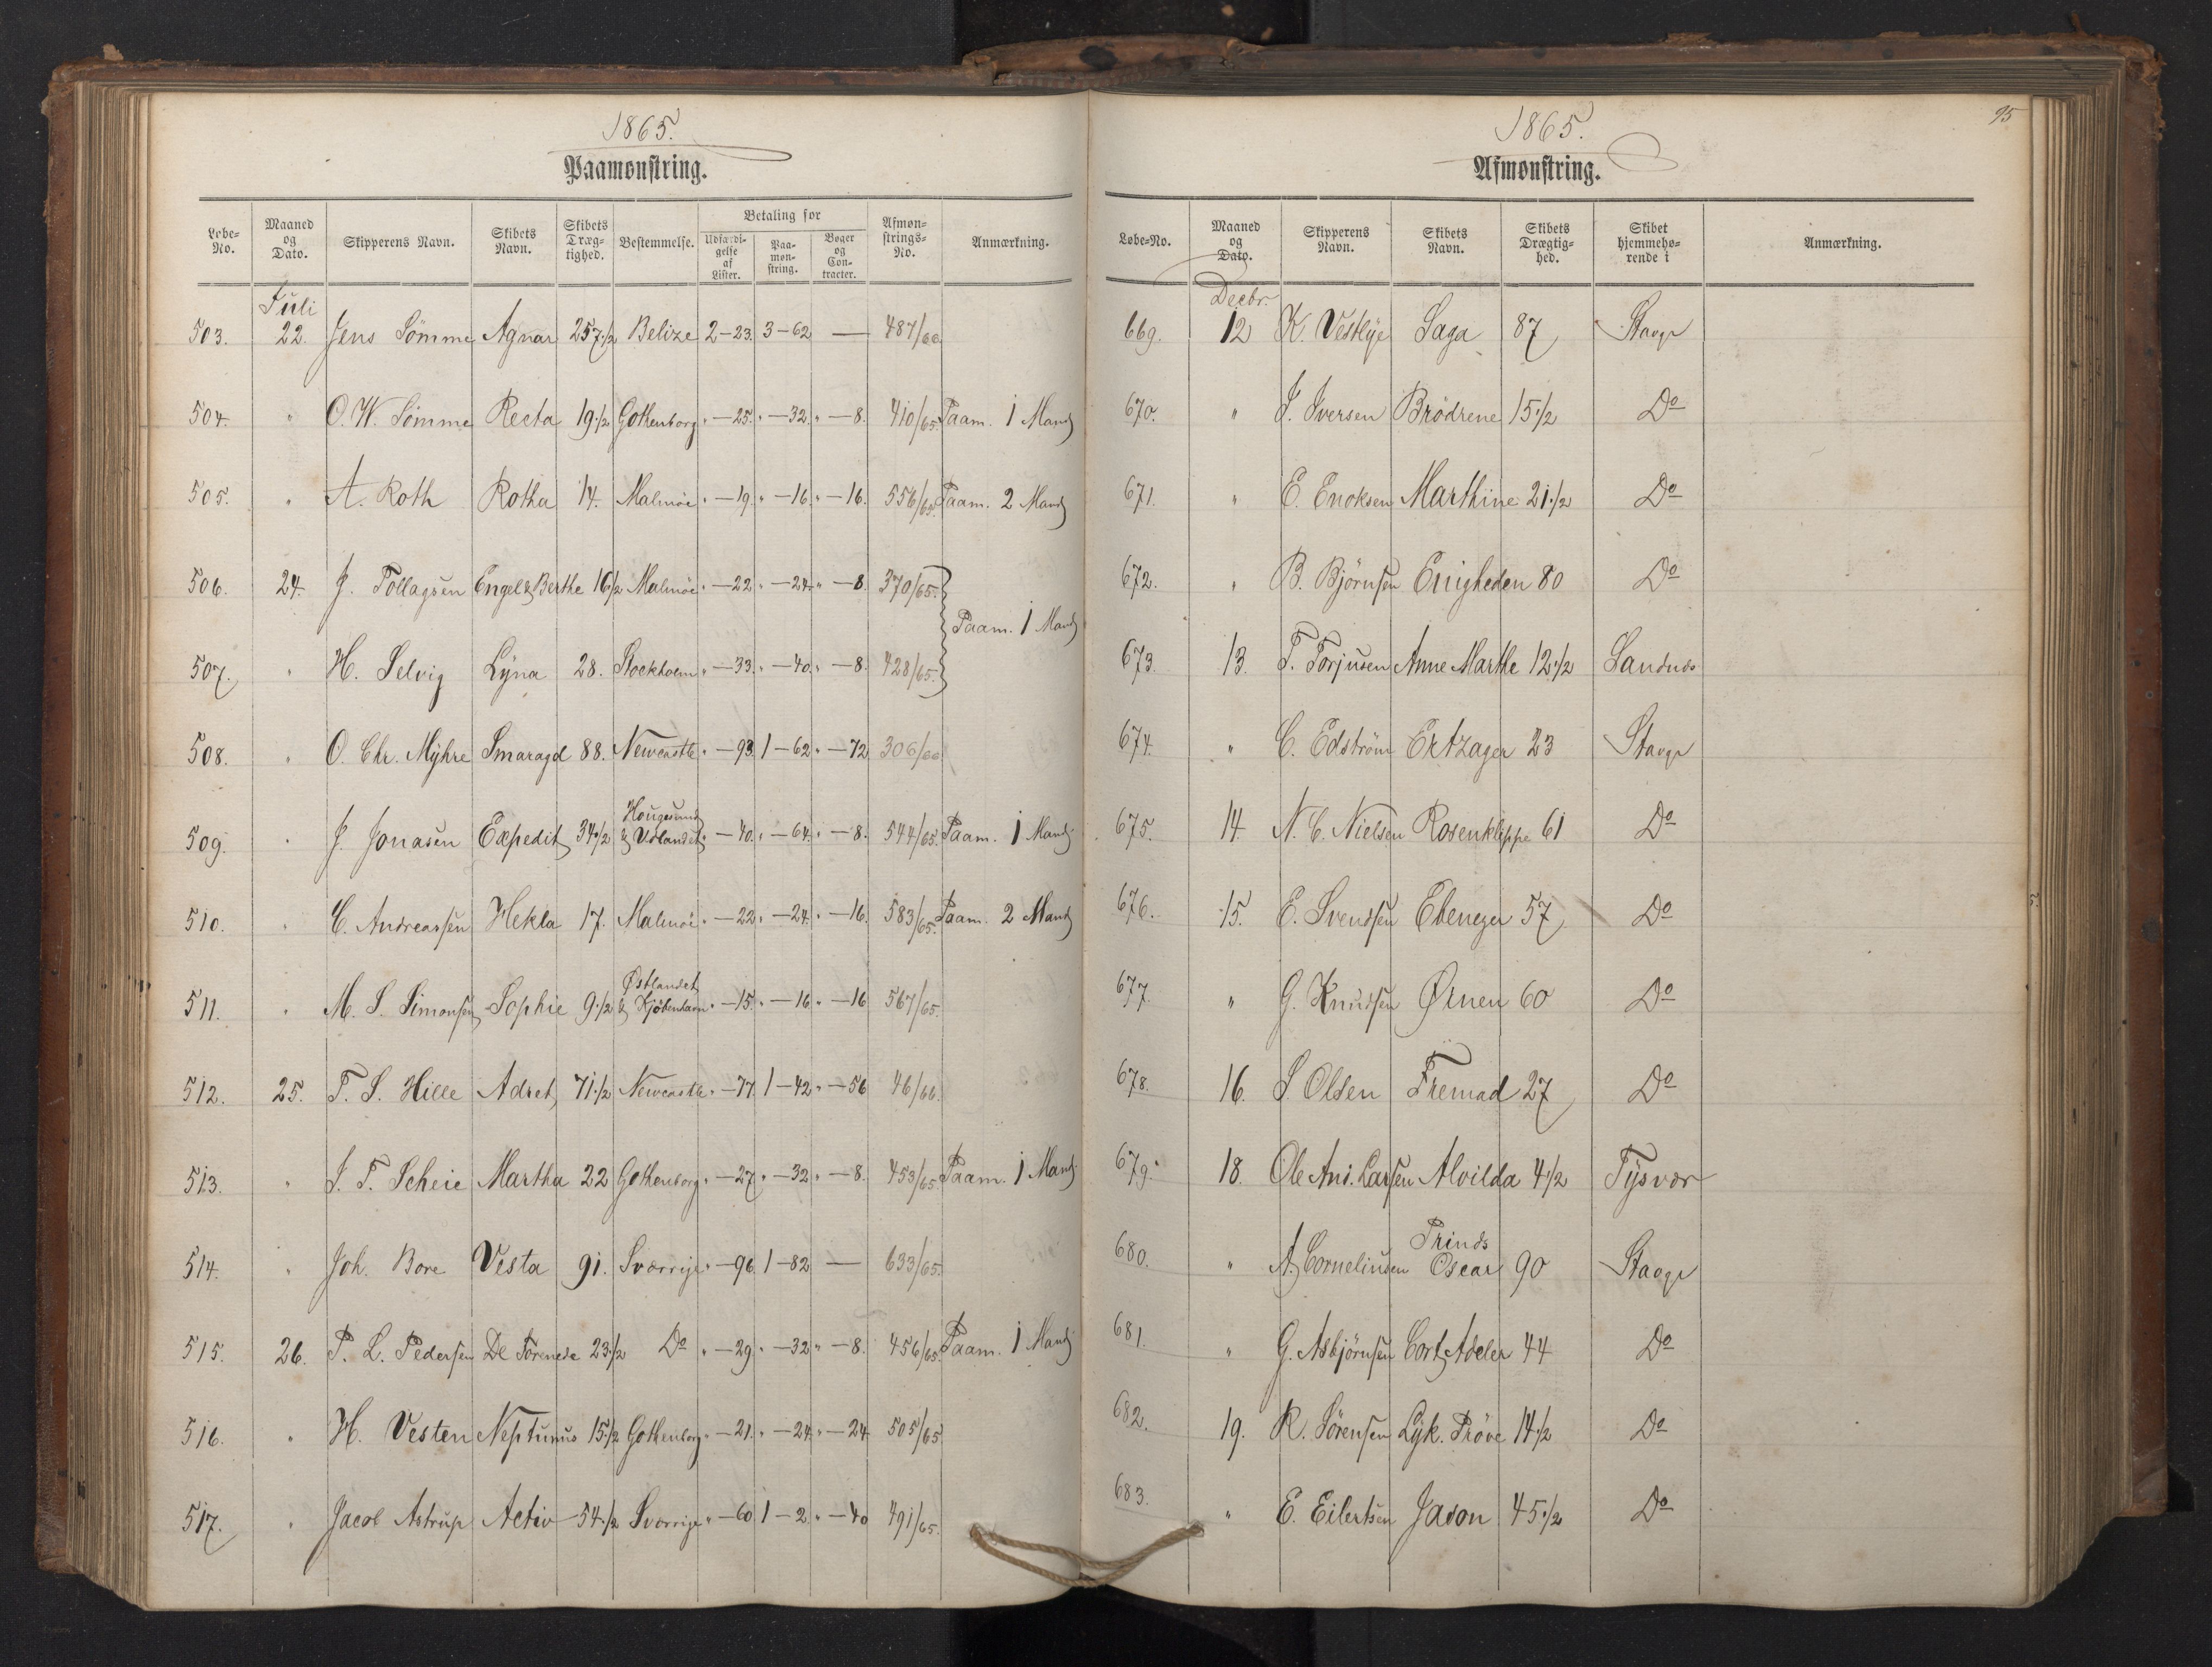 1865.
Paamønstring.
Løbe-No. Maaned og Dato. Skipperens Navn. Skibets Navn. Skibets Drægtighed. Bestemmelse. Betaling for Udfærdigelse af Lister. Paamønstring. Bøger og Contracter. Afmønstrings-No. Anmærkning.
Juli
503. 22. Jens Sömme Agnar 257 1/2 Belize 2-23. 3-62 — 487/66
504. " O. W. Sömme Recta 19 1/2 Gothenborg " -25. " -32. " -8. 410/65. Paam. 1 Mand
505. " A. Roth Rotha 14. Malmöe " -19. " -16. " -16. 556/65. Paam. 2 Mand
506. 24. J. Tollagsen Engel & Berthe 16 1/2 Malmöe " -22. " -24. " -8. 370/65.
Paam. 1 Mand
507. " H. Selvig Lyna 28. Stockholm " -33. " -40. " -8. 428/65.
508. " O. Chr. Myhre Smaragd 88. Newcastle " -93. 1-62 " -72 306/66
509. " J. Jonasen Expedit 34 1/2 Hougesund & Udlandet " -40. " -64. " -8. 544/65. Paam. 1 Mand
510. " C. Andreassen Hekla 17. Malmöe " -22. " -24. " -16. 583/65. Paam. 2 Mand
511. " M. S. Simonsen Sophie 9 1/2 Østlandet & Kjöbenhavn " -15. " -16 " -16 567/65.
512. 25. T. S. Hille Adset 71 1/2 Newcastle " -77. 1-42 " -56 46/66.
513. " J. T. Scheie Martha 22 Gothenborg " -27. " -32 " -8. 453/65. Paam. 1 Mand
514. " Joh. Bore Vesta 91. Sverrige " -96. 1-82 — 633/65.
515. 26. P. L. Pedersen De Forenede 23 1/2 Do " -29. " -32 " -8. 456/65. Paam. 1 Mand
516. " H. Vesten Neptunus 15 1/2 Gothenborg " -21. " -24. " -24 505/65
517. " Jacob Astrup Activ 54 1/2 Sverrige " -60 1-2. " -40 491/65.
95
1865.
Afmønstring.
Løbe-No. Maaned og Dato. Skipperens Navn. Skibets Navn. Skibets Drægtighed. Skibet hjemmehørende i Anmærkning.
Decbr.
669. 12 K. Vestlye Saga 87 Stavgr
670. " J. Iversen Brödrene 15 1/2 Do
671. " E. Enoksen Marthine 21 1/2 Do
672. " B. Björnsen Enigheden 80 Do
673. 13. T. Torjusen Anne Marthe 12 1/2 Sandnæs
674. " C. Edström Ertzager 23 Stavgr
675. 14. N. C. Nielsen Rosenklippe 61 Do
676. 15. E. Svendsen Ebenezer 57 Do
677. " G. Knudsen Ørnen 60 Do
678. 16. S. Olsen Fremad 27 Do
679. 18. Ole Ani. Larsen Alvilda 4 1/2 Tysvær
680. " A. Corneliusen Prinds Oscar 90 Stavgr
681. " G. Asbjörnsen Cort Adeler 44 Do
682. 19. R. Sörensen Lyk. Pröve 14 1/2 Do
683. " E. Eilertsen Jason 45 1/2 Do